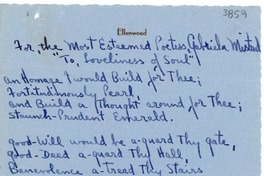 3859
Ellenwood
For, the Most Esteemed Poetess, Gabriela Mistral
"To, Loveliness of Soul"
an Homage I would Build for Thee;
Fortitudinously Pearl
and Build a Thought around for Thee;
Staunch-Prudent Emerald.
good-Will would be a-guard Thy gate,
good-Deed a-guard Thy Hall,
Benevolence a-tread Thy Stairs